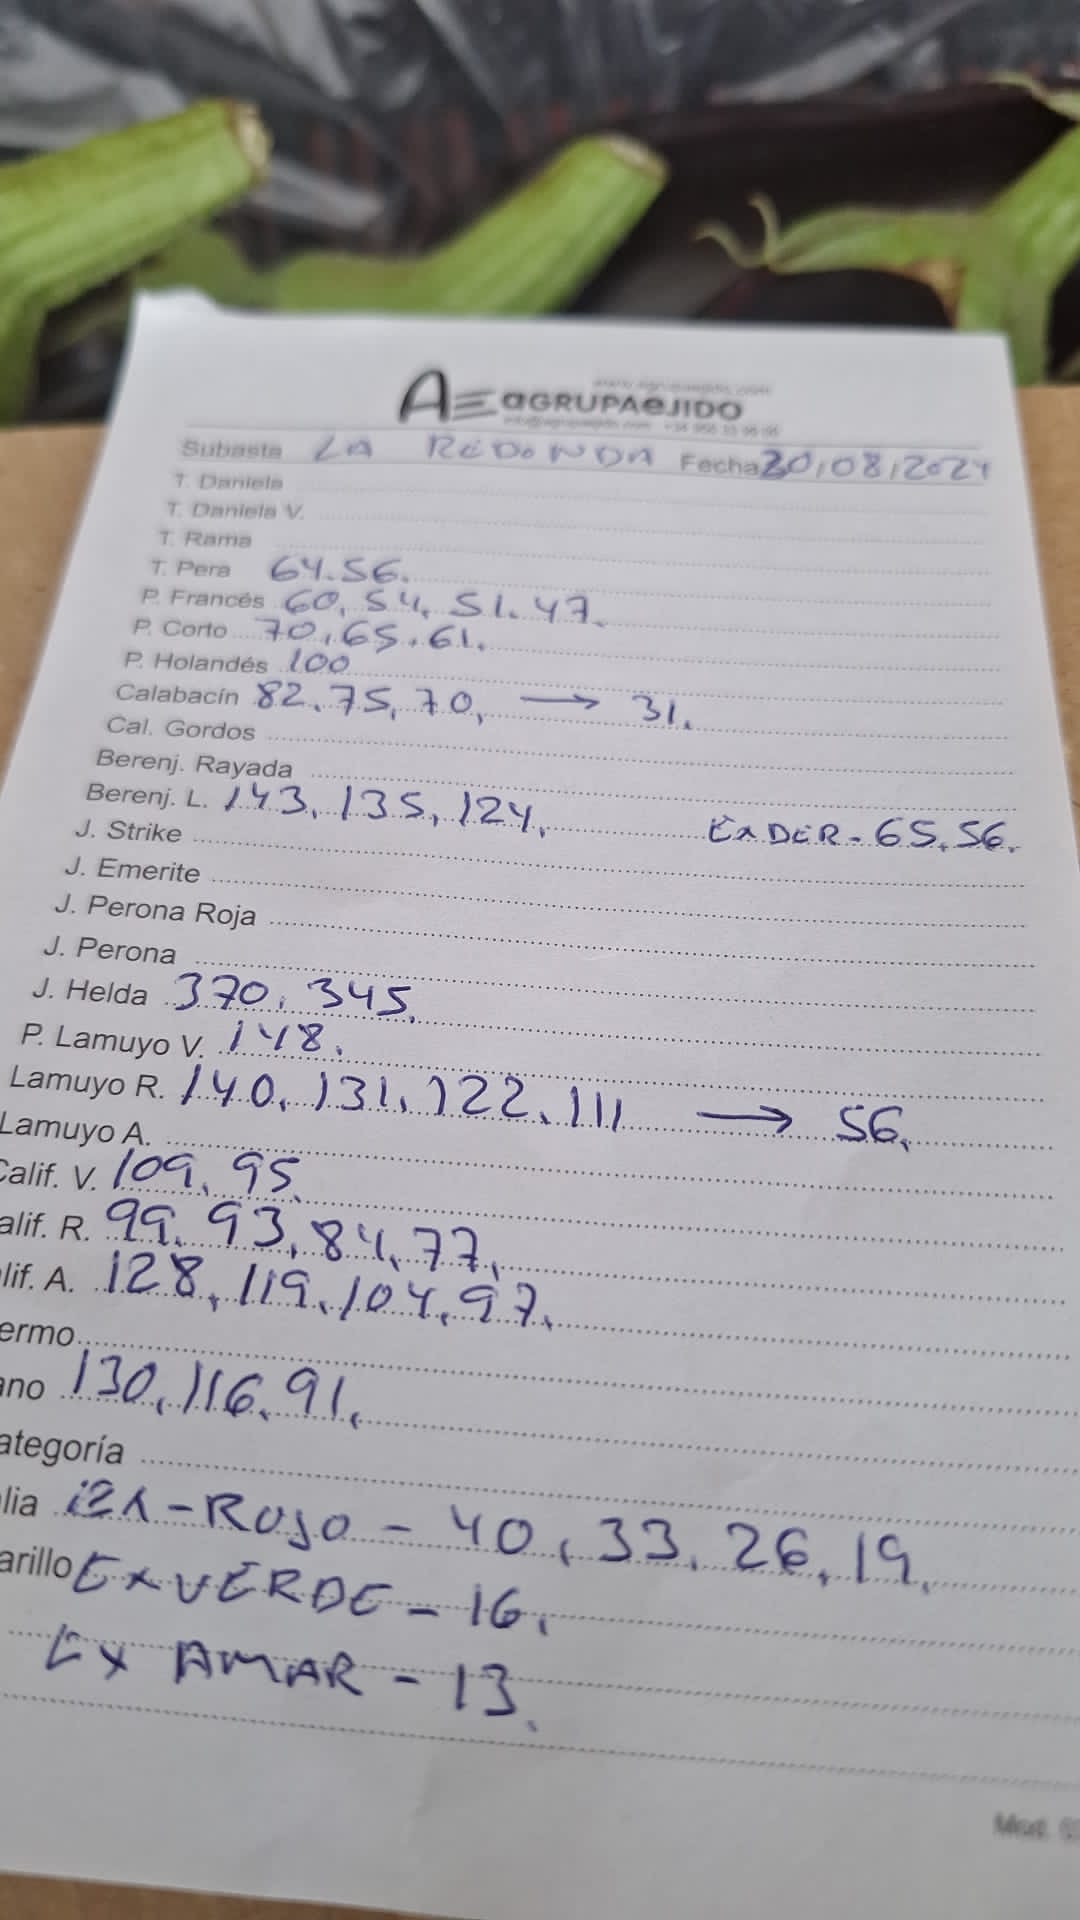 AGRUPAEJIDO
Subasta LA REDONDA Fecha 30/08/2024
T. Daniela
T. Daniela V.
T. Rama
T. Pera 64.56.
P. Francés 60, 54, 51. 47.
P. Corto 70, 65, 61.
P. Holandés 100
Calabacín 82, 75, 70, → 31.
Cal. Gordos
Berenj. Rayada
Berenj. L. 143, 135, 124, Ex DER - 65, 56.
J. Strike
J. Emerite
J. Perona Roja
J. Perona
J. Helda 370, 345.
P. Lamuyo V. 148.
Lamuyo R. 140, 131, 122, 111 → 56.
Lamuyo A.
Calif. V. 109, 95.
alif. R. 99, 93, 84, 77,
lif. A. 128, 119, 104, 97,
ermo
ano 130, 116, 91,
ategoría
lia - ROJO - 40, 33, 26, 19.
arillo Ex VERDE - 16,
Ex AMAR - 13.
Mod.